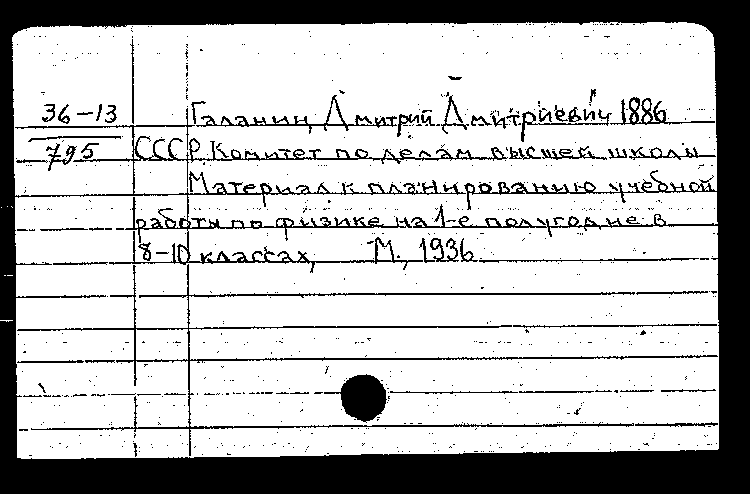 36-13 Галанин, Дмитрий Дмитриевич 1886
795 СССР. Комитет по делам высшей школы
Материал к планированию учебной
работы по физике на 1-е полугодие в
8-10 классах, М., 1936